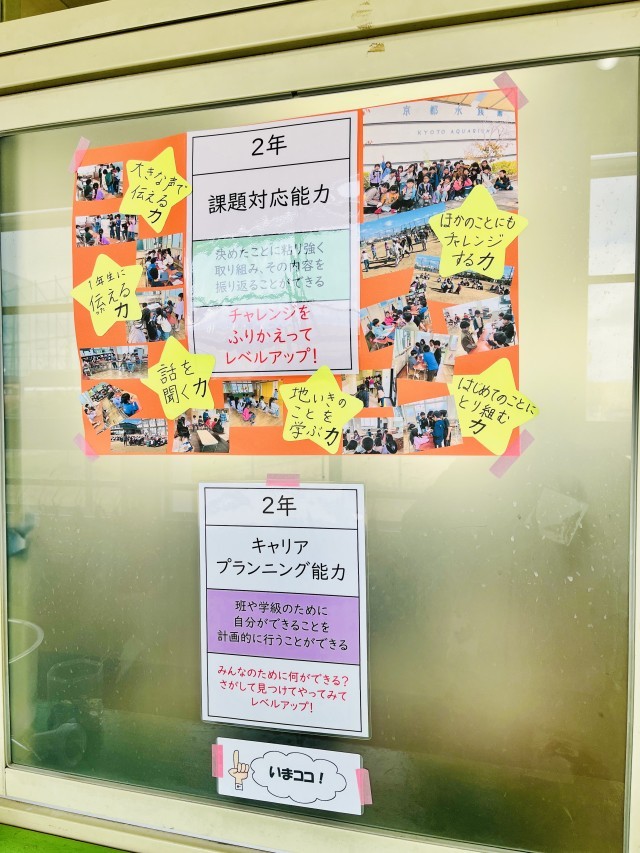 京都水族館
KYOTO AQUARIUM
大きな声で
伝える
力
2年
課題対応能力
決めたことに粘り強く
取り組み、その内容を
振り返ることができる
チャレンジを
ふりかえって
レベルアップ!
ほかのことにも
チャレンジ
する力
1年生に
伝える
力
話を
聞く力
地いきの
ことを
学ぶ力
はじめてのことに
とり組む
力
2年
キャリア
プランニング能力
班や学級のために
自分ができることを
計画的に行うことができる
みんなのために何ができる?
さがして見つけてやってみて
レベルアップ!
いまココ!